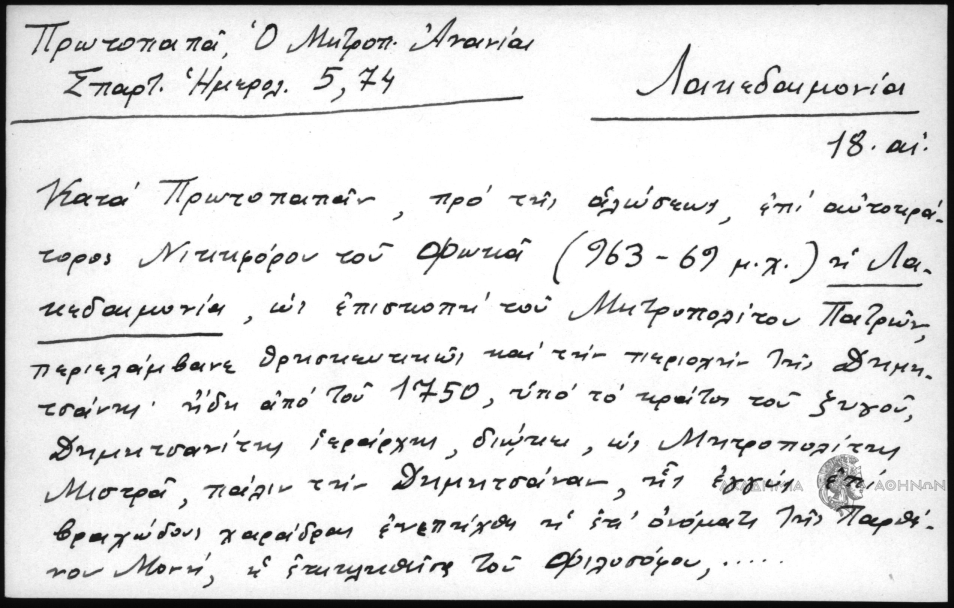 Πρωτοπαπᾶ, Ὁ Μητροπ. Ἀνανίας
Σπαρτ. Ἡμερολ. 5, 74
Λακεδαιμονία
18. αἰ.
Κατά Πρωτοπαπᾶν, πρό τῆς ἁλώσεως, ἐπί αὐτοκρά-
τορος Νικηφόρου τοῦ Φωκᾶ (963-69 μ.χ.) ἡ Λα-
κεδαιμονία, ὡς ἐπισκοπή τοῦ Μητροπολίτου Πατρῶν,
περιελάμβανε θρησκευτικῶς καί τήν περιοχήν τῆς Δημη-
τσάνης· ἤδη ἀπό τοῦ 1750, ὑπό τό κράτος τοῦ ζυγοῦ,
Δημητσανίτης ἱεράρχης, διώκει, ὡς Μητροπολίτης
Μιστρᾶ, πάλιν τήν Δημητσάναν, ἧς ἐγγύς ἐπί
βραχώδους χαράδρας ἐνεπήχθη ἡ ἐπ' ὀνόματι τῆς Παρθέ-
νου Μονή, ἡ ἐπικληθεῖσα τοῦ Φιλοσόφου, .....
ΑΘΗΝΩΝ